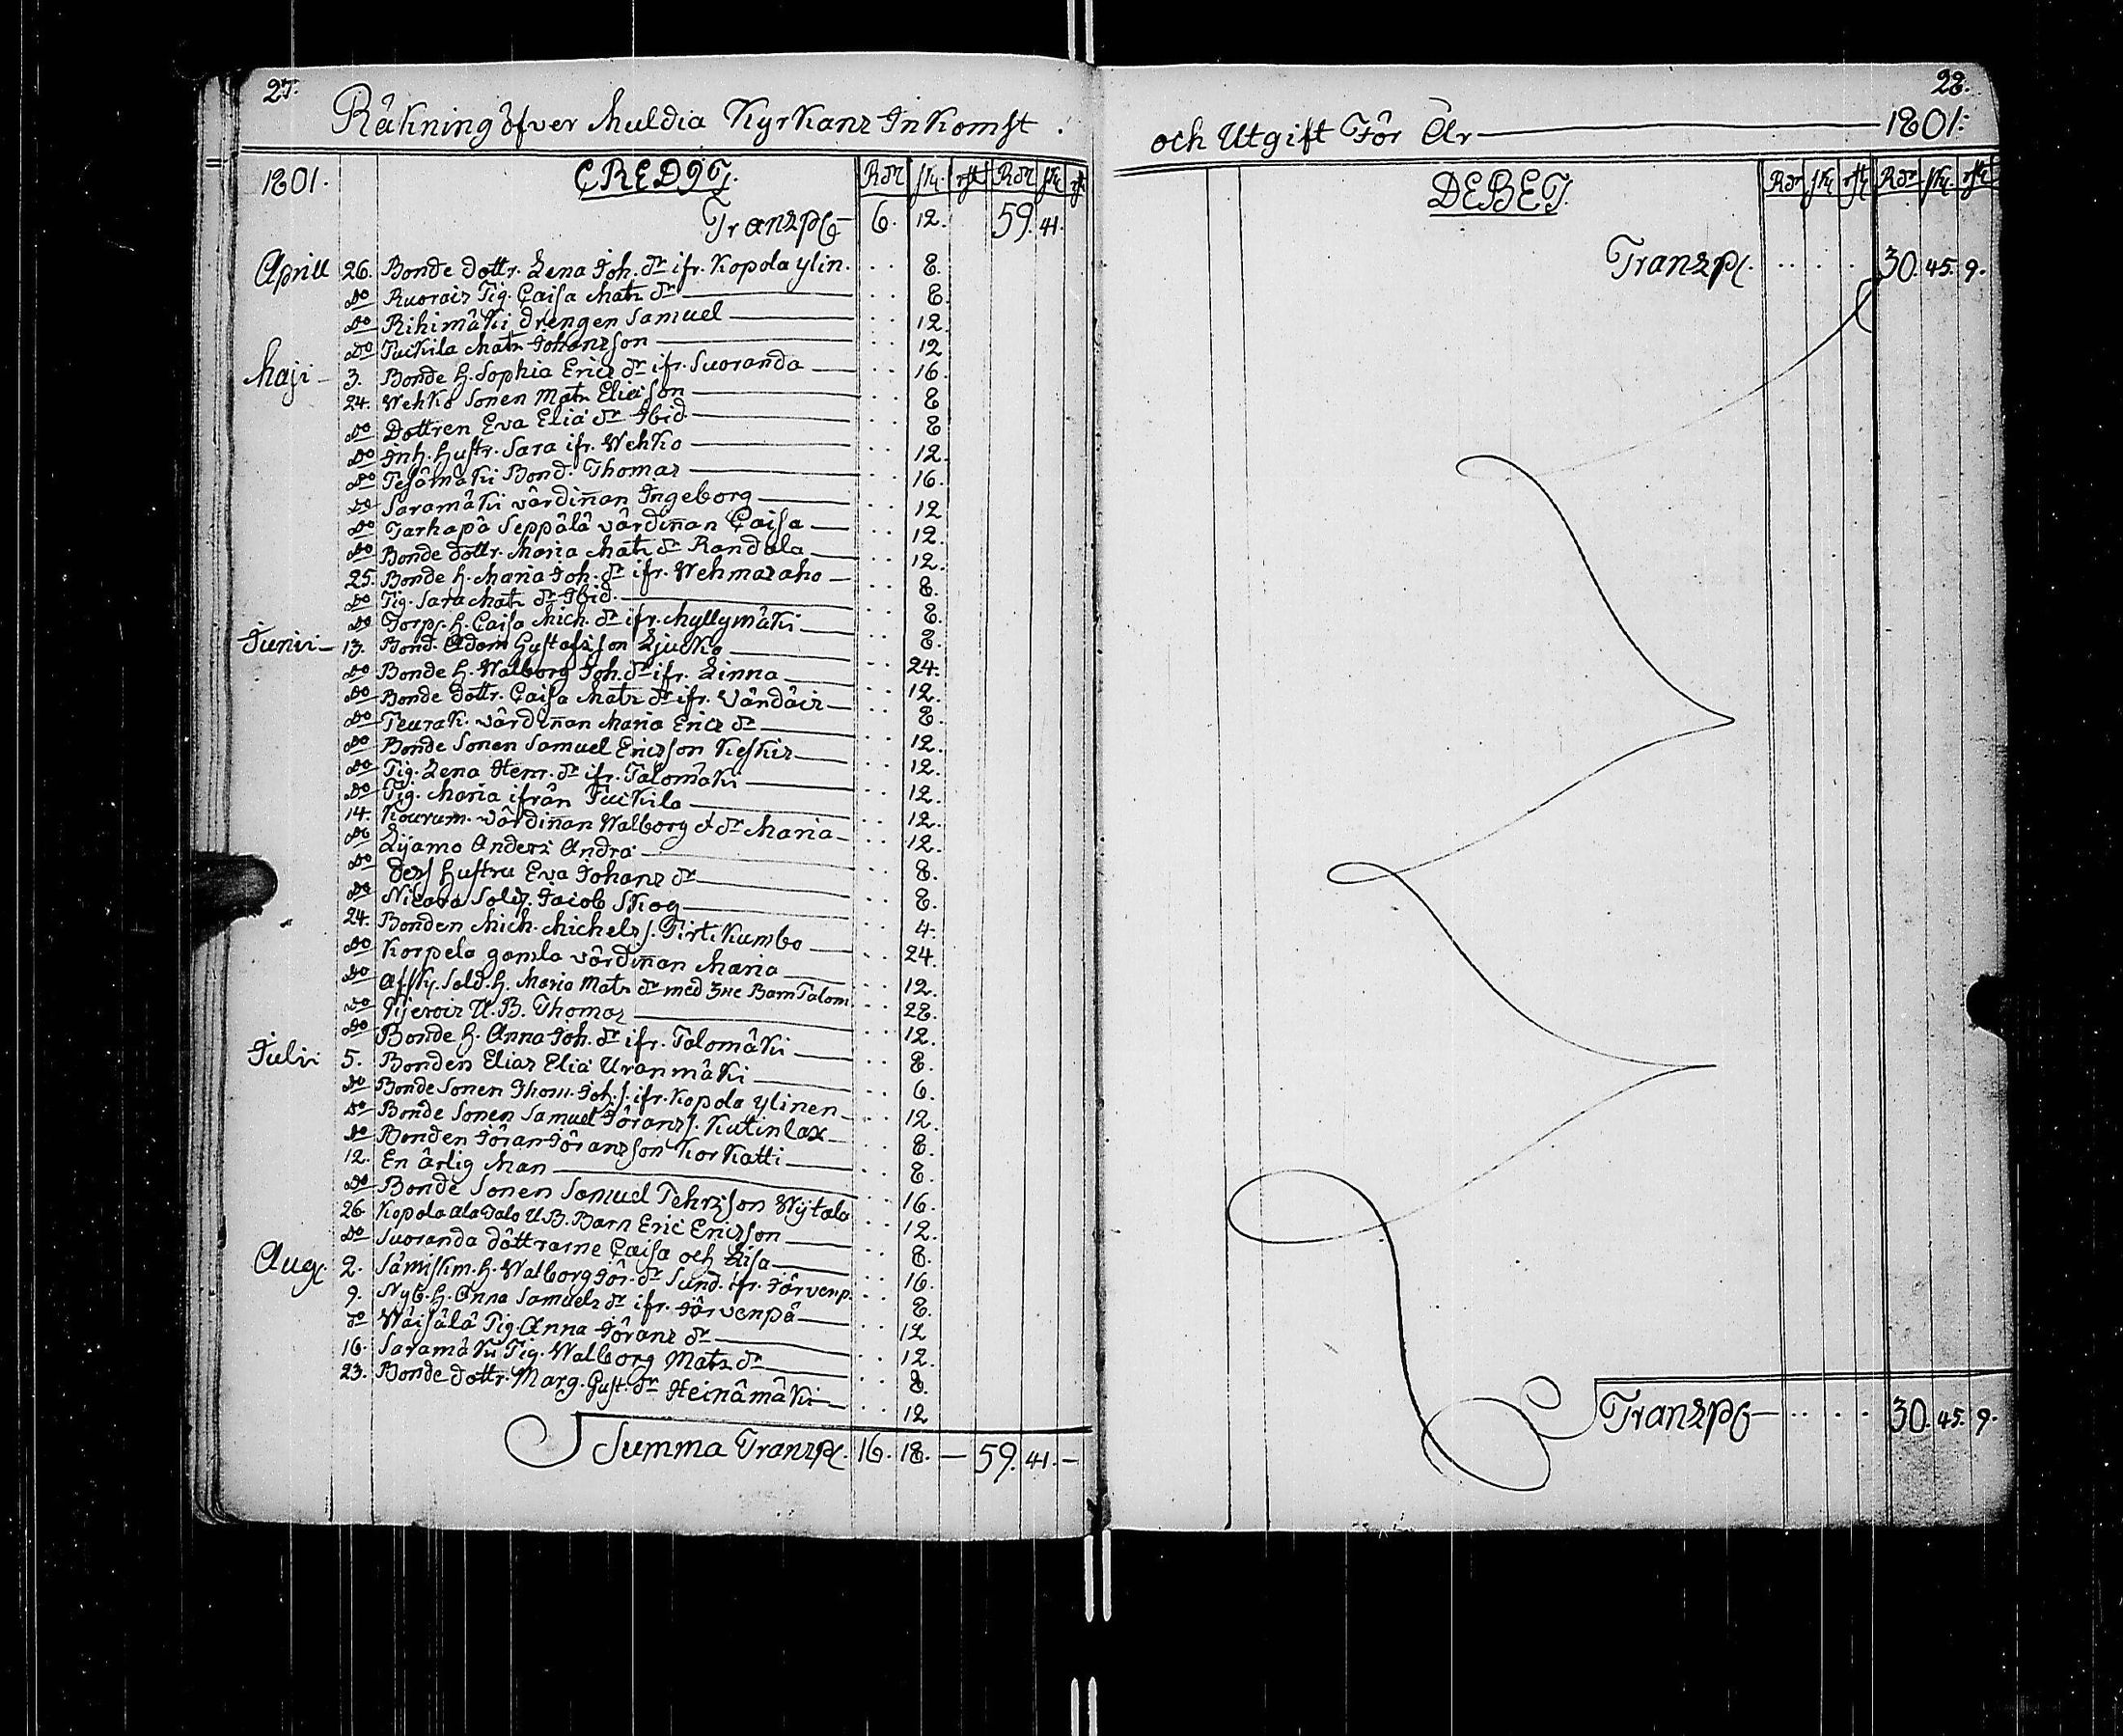 27.
Räkning öfver Muldia Kyrkans Inkomst.
1801. CREDIT. Rdr sk. rst Rdr sk rst
Transp 6. 12. 59. 41.
Aprill 26. Bonde dottr. Lena Joh. dr ifr. Kopola ylin. .. 8.
do Ruorais Pig. Caisa Mats dr .. 8.
do Rihimäki drengen Samuel .. 12.
do Puikila Mats Johansson .. 12
Maji 3. Bonde h. Sophia Erics dr ifr. Suoranda .. 16.
24. Wehko Sonen Mats Eliæson .. 8
do Dottren Eva Eliæ dr Ibid. .. 8
do Inh. hustr. Sara ifr. Wehko .. 12.
do Pesämäki Bond. Thomas .. 16.
do Saramäki värdinan Ingeborg .. 12
do Tarhapä Seppälä värdinan Caisa .. 12.
do Bonde dottr. Maria Mats dr Randala .. 12.
25. Bonde h. Maria Joh. dr ifr. Wehmasaho .. 8.
do Pig. Sara Mats dr Ibid. .. 8.
do Torps. h. Caisa Mich. dr ifr. Myllymäki .. 8.
Junii 13. Bond. Adam Gustafsson Ljucko .. 24.
do Bonde h. Walborg Joh. dr ifr. Linna .. 12.
do Bonde dottr. Caisa Mats dr ifr. Vändäis .. 8.
do Peurak. värdinan Maria Erics dr .. 12.
do Bonde Sonen Samuel Ericsson Keskis .. 12.
do Pig. Lena Henr. dr ifr. Talomäki .. 12.
do Pig. Maria ifrån Puikila .. 12.
14. Kourum. värdinan Walborg & dr Maria .. 12.
do Lijamo Anders Andra .. 8.
do dess hustru Eva Johans dr .. 8.
do Nisara Sold. Jacob Skog .. 4.
24. Bonden Mich. Michels s. Pirtikumbo .. 24.
do Korpela gamla värdinan Maria .. 12.
do Afsk. Sold. h. Maria Mats dr med 3ne Barn Talom. .. 28.
do U. B. Thomas .. 12.
do Bonde h. Anna Joh. dr ifr. Talomäki .. 8.
Julii 5. Bonden Elias Eliæ Uranmäki .. 6.
do Bonde Sonen Thom. Joh. s. ifr. Kopola ylinen .. 12.
do Bonde Sonen Samuel Jörans s. Kutinlax .. 8.
do Bonden Jöran Jöransson Korkatti .. 8.
12. En ärlig Man .. 16.
do Bonde Sonen Samuel Pehrsson Wijtala .. 12.
26. Kopola ala Talo U. B. Barn Eric Ericsson .. 8.
do Suoranda döttrarne Caisa och Lisa .. 16.
Aug. 2. Sämiskm. h. Walborg Jör. dr Sund. ifr. Järvenp. .. 8.
9. Nyb. h. Anna Samuels dr ifr. Järvenpä .. 12
do Wäisälä Pig. Anna Jörans dr .. 12.
16. Saramäki Pig. Walborg Mats dr .. 8.
23. Bonde dottr. Marg. Gust. dr Heinämäki .. 12
Summa Transp. 16. 18. — 59. 41. —
28.
och Utgift För År 1801:
DEBET. Rdr sk rst Rdr sk rst
Transp. .... 30. 45. 9.
Transp .... 30. 45. 9.